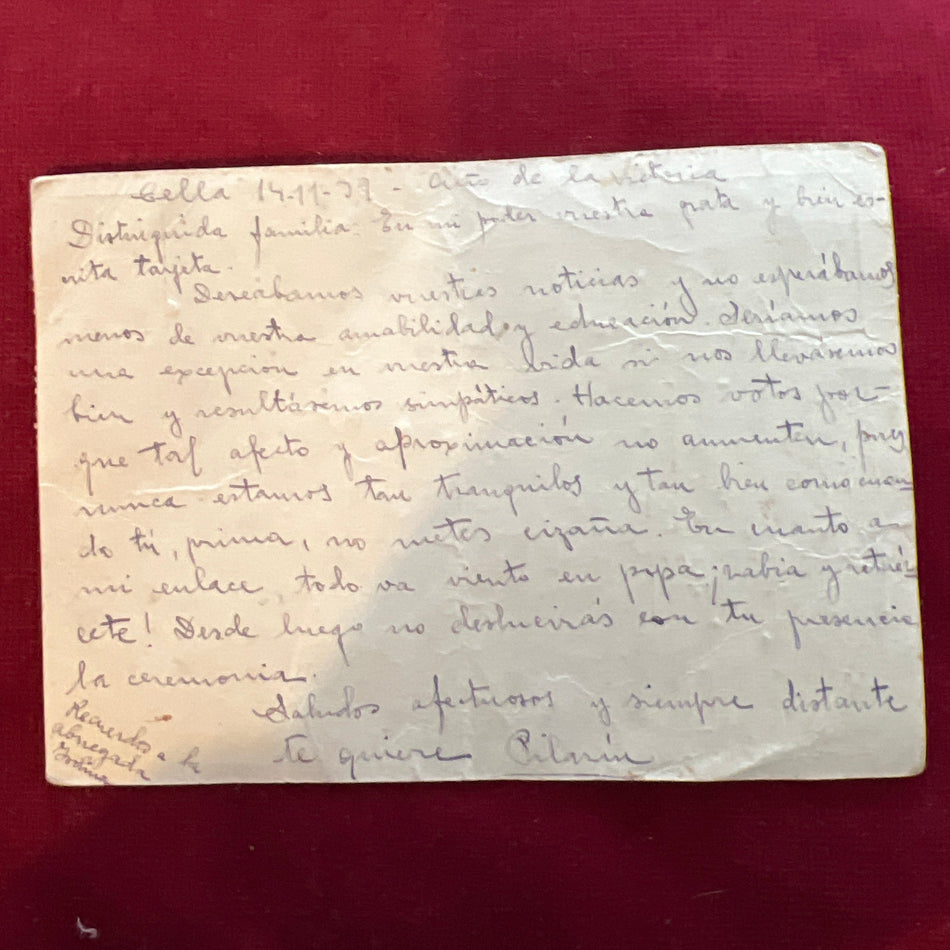 Cella 14-11-39 - Año de la Victoria
Distinguida familia: En mi poder vuestra grata y bien es-
crita tarjeta.
Deseábamos vuestras noticias y no esperábamos
menos de vuestra amabilidad y educación. Seríamos
una excepción en vuestra vida si nos lleváramos
bien y resultásemos simpáticos. Hacemos votos por-
que tal afecto y aproximación no aumenten, pues
nunca estamos tan tranquilos y tan bien como cuan-
do tú, prima, no metes cizaña. En cuanto a
mi enlace, todo va viento en popa; ¡rabia y retuér-
cete! Desde luego no deslucirás con tu presencia
la ceremonia.
Saludos afectuosos y siempre distante
te quiere Pilarín
Recuerdos a la
abnegada